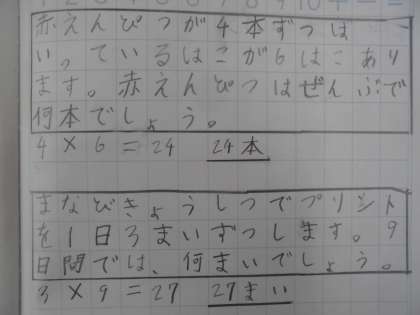 赤えんぴつが4本ずつは
いっているはこが6はこあり
ます。赤えんぴつはぜんぶで
何本でしょう。
4×6=24 24本
まなびきょうしつでプリント
を1日3まいずつします。9
日間では、何まいでしょう。
3×9=27 27まい